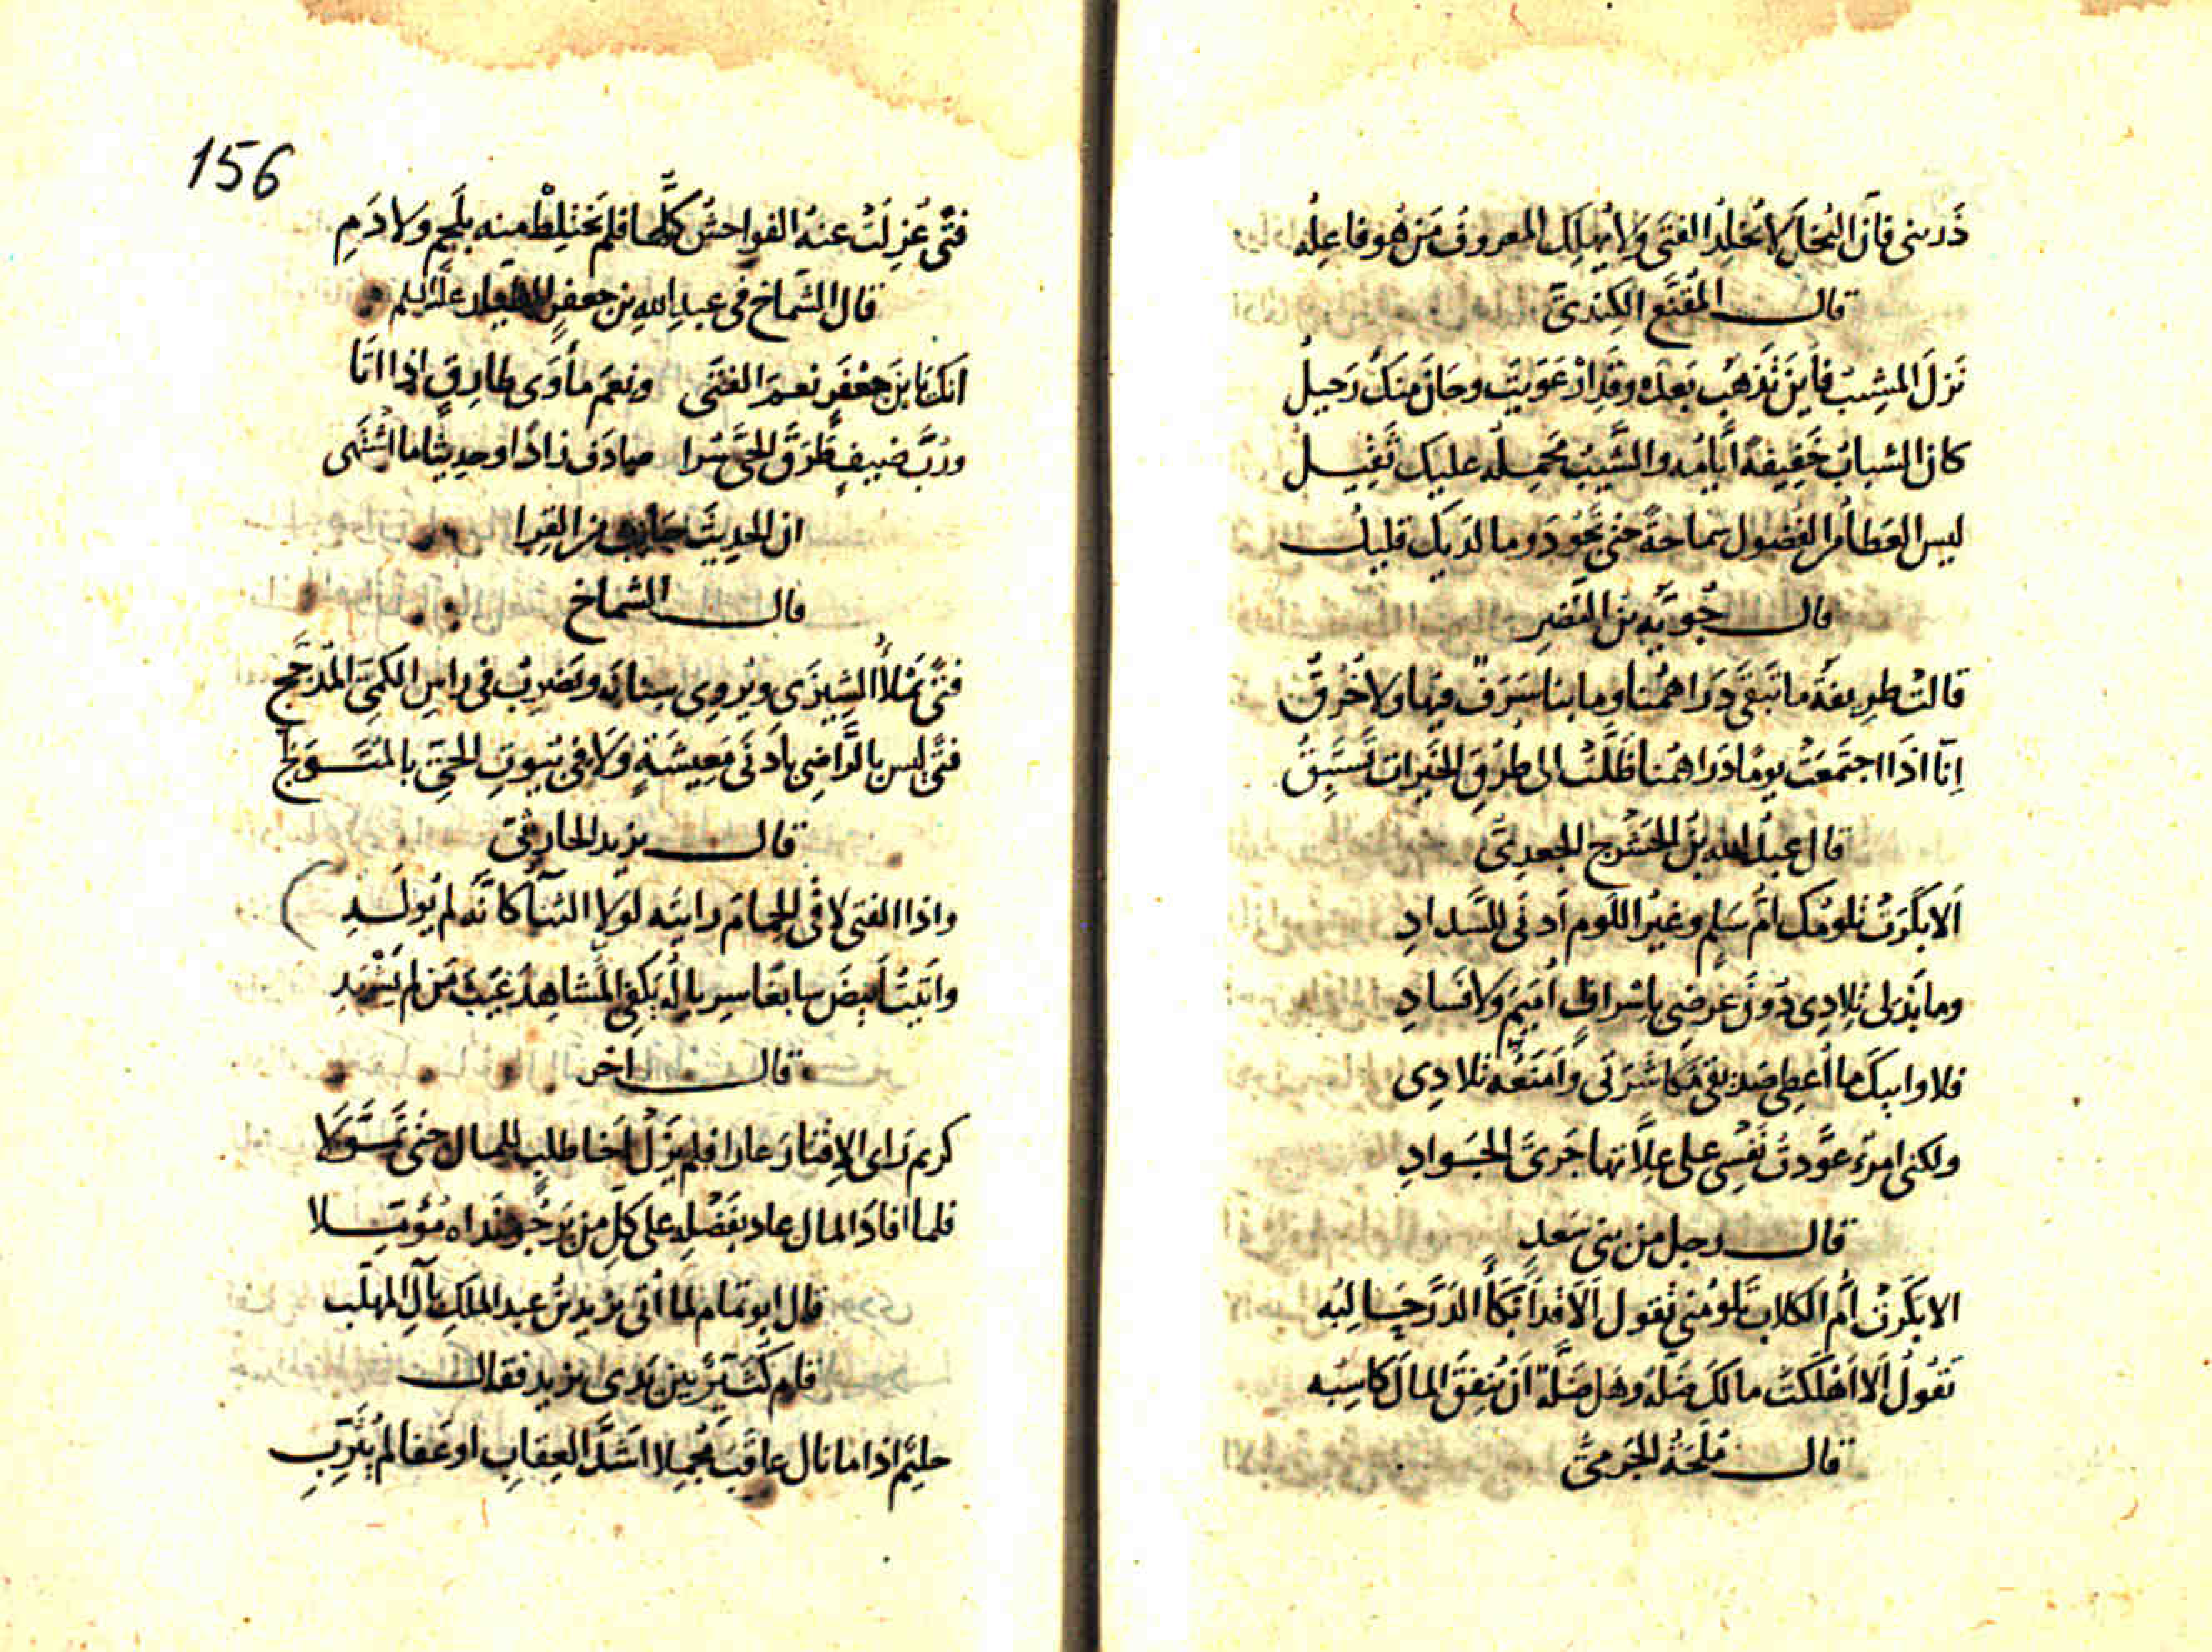 ذَريني فانّ البُخلَ لا يُخلِدُ الفتَى وَلا يُهلِك المعروفُ مَن هُو فاعِلُه
قال المُقَنَّع الكِنديّ
نَزلَ المشِيبُ فأينَ تَذهَبُ بَعدَه وقَدِ ارْعَوَيتَ وحَانَ مِنكَ رَحيلُ
كان الشبابُ خَفِيفةً أيّامُه والشَّيبُ مَحمِلُه عليك ثَقِيلُ
ليس العَطا من الفضول سَماحةً حتى تَجُودَ وما لدَيك قليلُ
قال جُوَيّه بن النَّضرِ
قالتْ طرِيفةُ ما تَبقَى دَرَاهمُنا وما بنا سَرَفٌ فيها ولا خُرُقُ
اِنّا اذَا اجتَمَعَتْ يومًا دَراهمُنا ظَلَّتْ الى طُرُقِ الخَيرات تَستَبِقُ
قال عبدُ الله بنُ الحَشْرَج الجَعدِيّ
اَلا بَكَرَتْ تَلومُك امُّ سَلمٍ وغيرُ اللَّوم اَدنَى للسَّدادِ
وما بَذلى تِلادِى دُونَ عِرضِى باسْرافٍ اُمَيمَ ولا فَسادِ
فلا وابيكَ ما اُعطِى صَديقى مُكاشَرَتى وَاَمنَعُه تلادِى
ولكنى امرُءٌ عَوَّدتُ نَفسِى على عِلّاتها جَرىَ الجَوادِ
قال رجل من بنى سَعدٍ
الا بَكَرَتْ اُمُّ الكلابِ تَلومُنى تقول اَلا قد اَبكَأَ الدَرَّ حَالِبُه
تَقُولُ اَلا اَهلَكتَ مالَكَ ضَلّةً وهَل ضَلّةٌ اَن يُنفِقَ المالَ كاسِبُه
قال مِلحَةُ الجَرمىّ
156
فتًى عُزِلَتْ عنهُ الفواحشُ كلُّها فلم تَختَلِطْ مِنه بلَحمٍ ولا دَمِ
قال الشمّاخ فى عبدِ اللهِ بن جعفرٍ
اِنّكَ يَا بنَ جعْفَرٍ نعمَ الفتَى ونِعمَ مأوَى طارِقٍ اِذا اتَا
ورُبَّ ضيفٍ طَرَقَ الحَىَّ سُرا صادَفَ زادًا وحديثًا ما اشْتَهى
ان الحديثَ جانِبٌ من القِرا
قال الشماخ
فتًى يَملأُ الشِيزَى ويُروِى سِنانَه ويَضرِبُ فى راسِ الكَمِىِّ المُدَجَّجِ
فتًى ليس بالرَّاضِى باَدنَى مَعِيشَةٍ وَلا فى بُيُوتِ الحَىّ بالمُتَوَلِّجِ
قال يزيد الحارثىّ
واذا الفتى لاقَى الحِمامَ رايتَه لولا الثناءُ كانّه لم يُولَدِ
واَتَيتُ اَبيضَ سابغًا سِربالُه يَكفِى المَشاهِدَ غَيبَ مَن لم يَشْهَدِ
قال اخر
كريم رَاى الاِقتارَ عارا فلم يَزَلْ اَخا طلبٍ للمال حتى تَمَوَّلا
فلما افادَ المال عاد بفَضْلِه على كلّ من يَرجُو نَداه مُؤمِّلا
قال ابو تمام لما اُتى يزيد بنُ عبد الملك بآلِ المهلّب
قام كُثَيِّر بين يَدى يزيد فقال
حليمٌ اذا ما نال عاقَبَ مُجمِلا اَشَدَّ العِقابِ او عَفا لم يُثرِّبِ